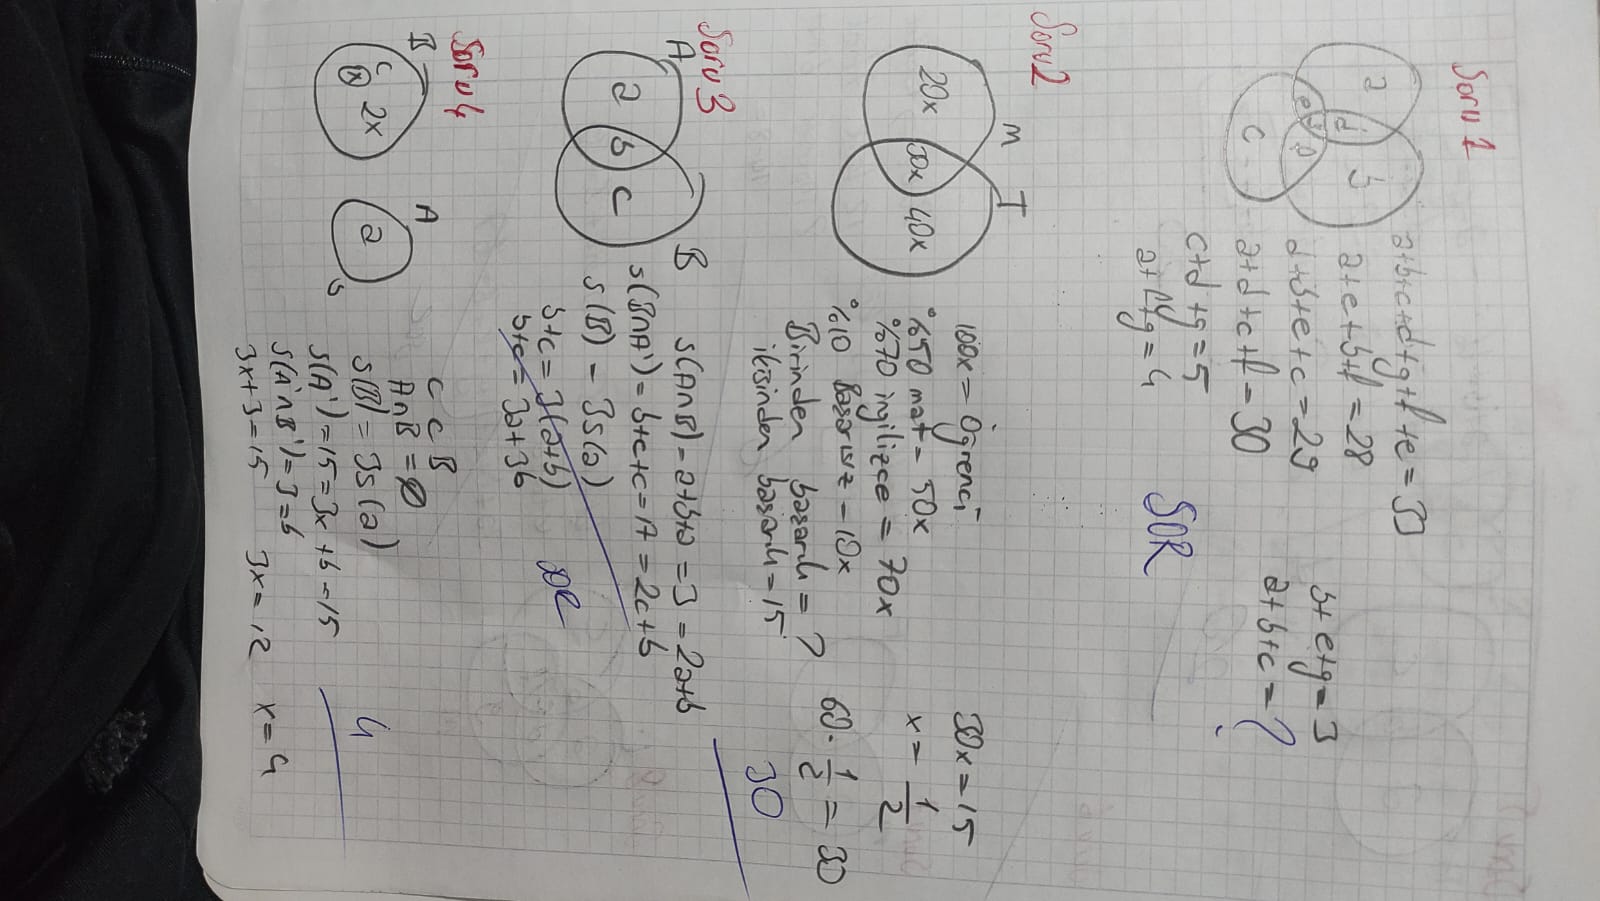 Soru 1
a
d
b
e
y
f
c
a+b+c+d+y+f+e=30
a+e+b+f=28
d+b+e+c=29
a+d+c+f=30
c+d+g=5
a+f+g=4
b+e+g=3
a+b+c=?
SOR
Soru 2
M
İ
20x
30x
40x
100x=öğrenci
%50 mat=50x
%70 ingilizce=70x
%10 Başarısız=10x
Birinden başarılı=?
ikisinden başarılı=15
30x=15
x=1/2
60·1/2=30
30
Soru 3
A
B
a
b
c
s(A∩B)=a+b+a=3=2a+b
s(B∩A')=b+c+c=17=2c+b
s(B)=3s(a)
b+c=3(a+b)
b+c=3a+3b
Soru 4
B
A
C
x
2x
a
6
C C B
A∩B=∅
s(B)=3s(a)
s(A')=15=3x+6=15
s(A'∩B')=3=6
3x+3=15
3x=12
x=4
4